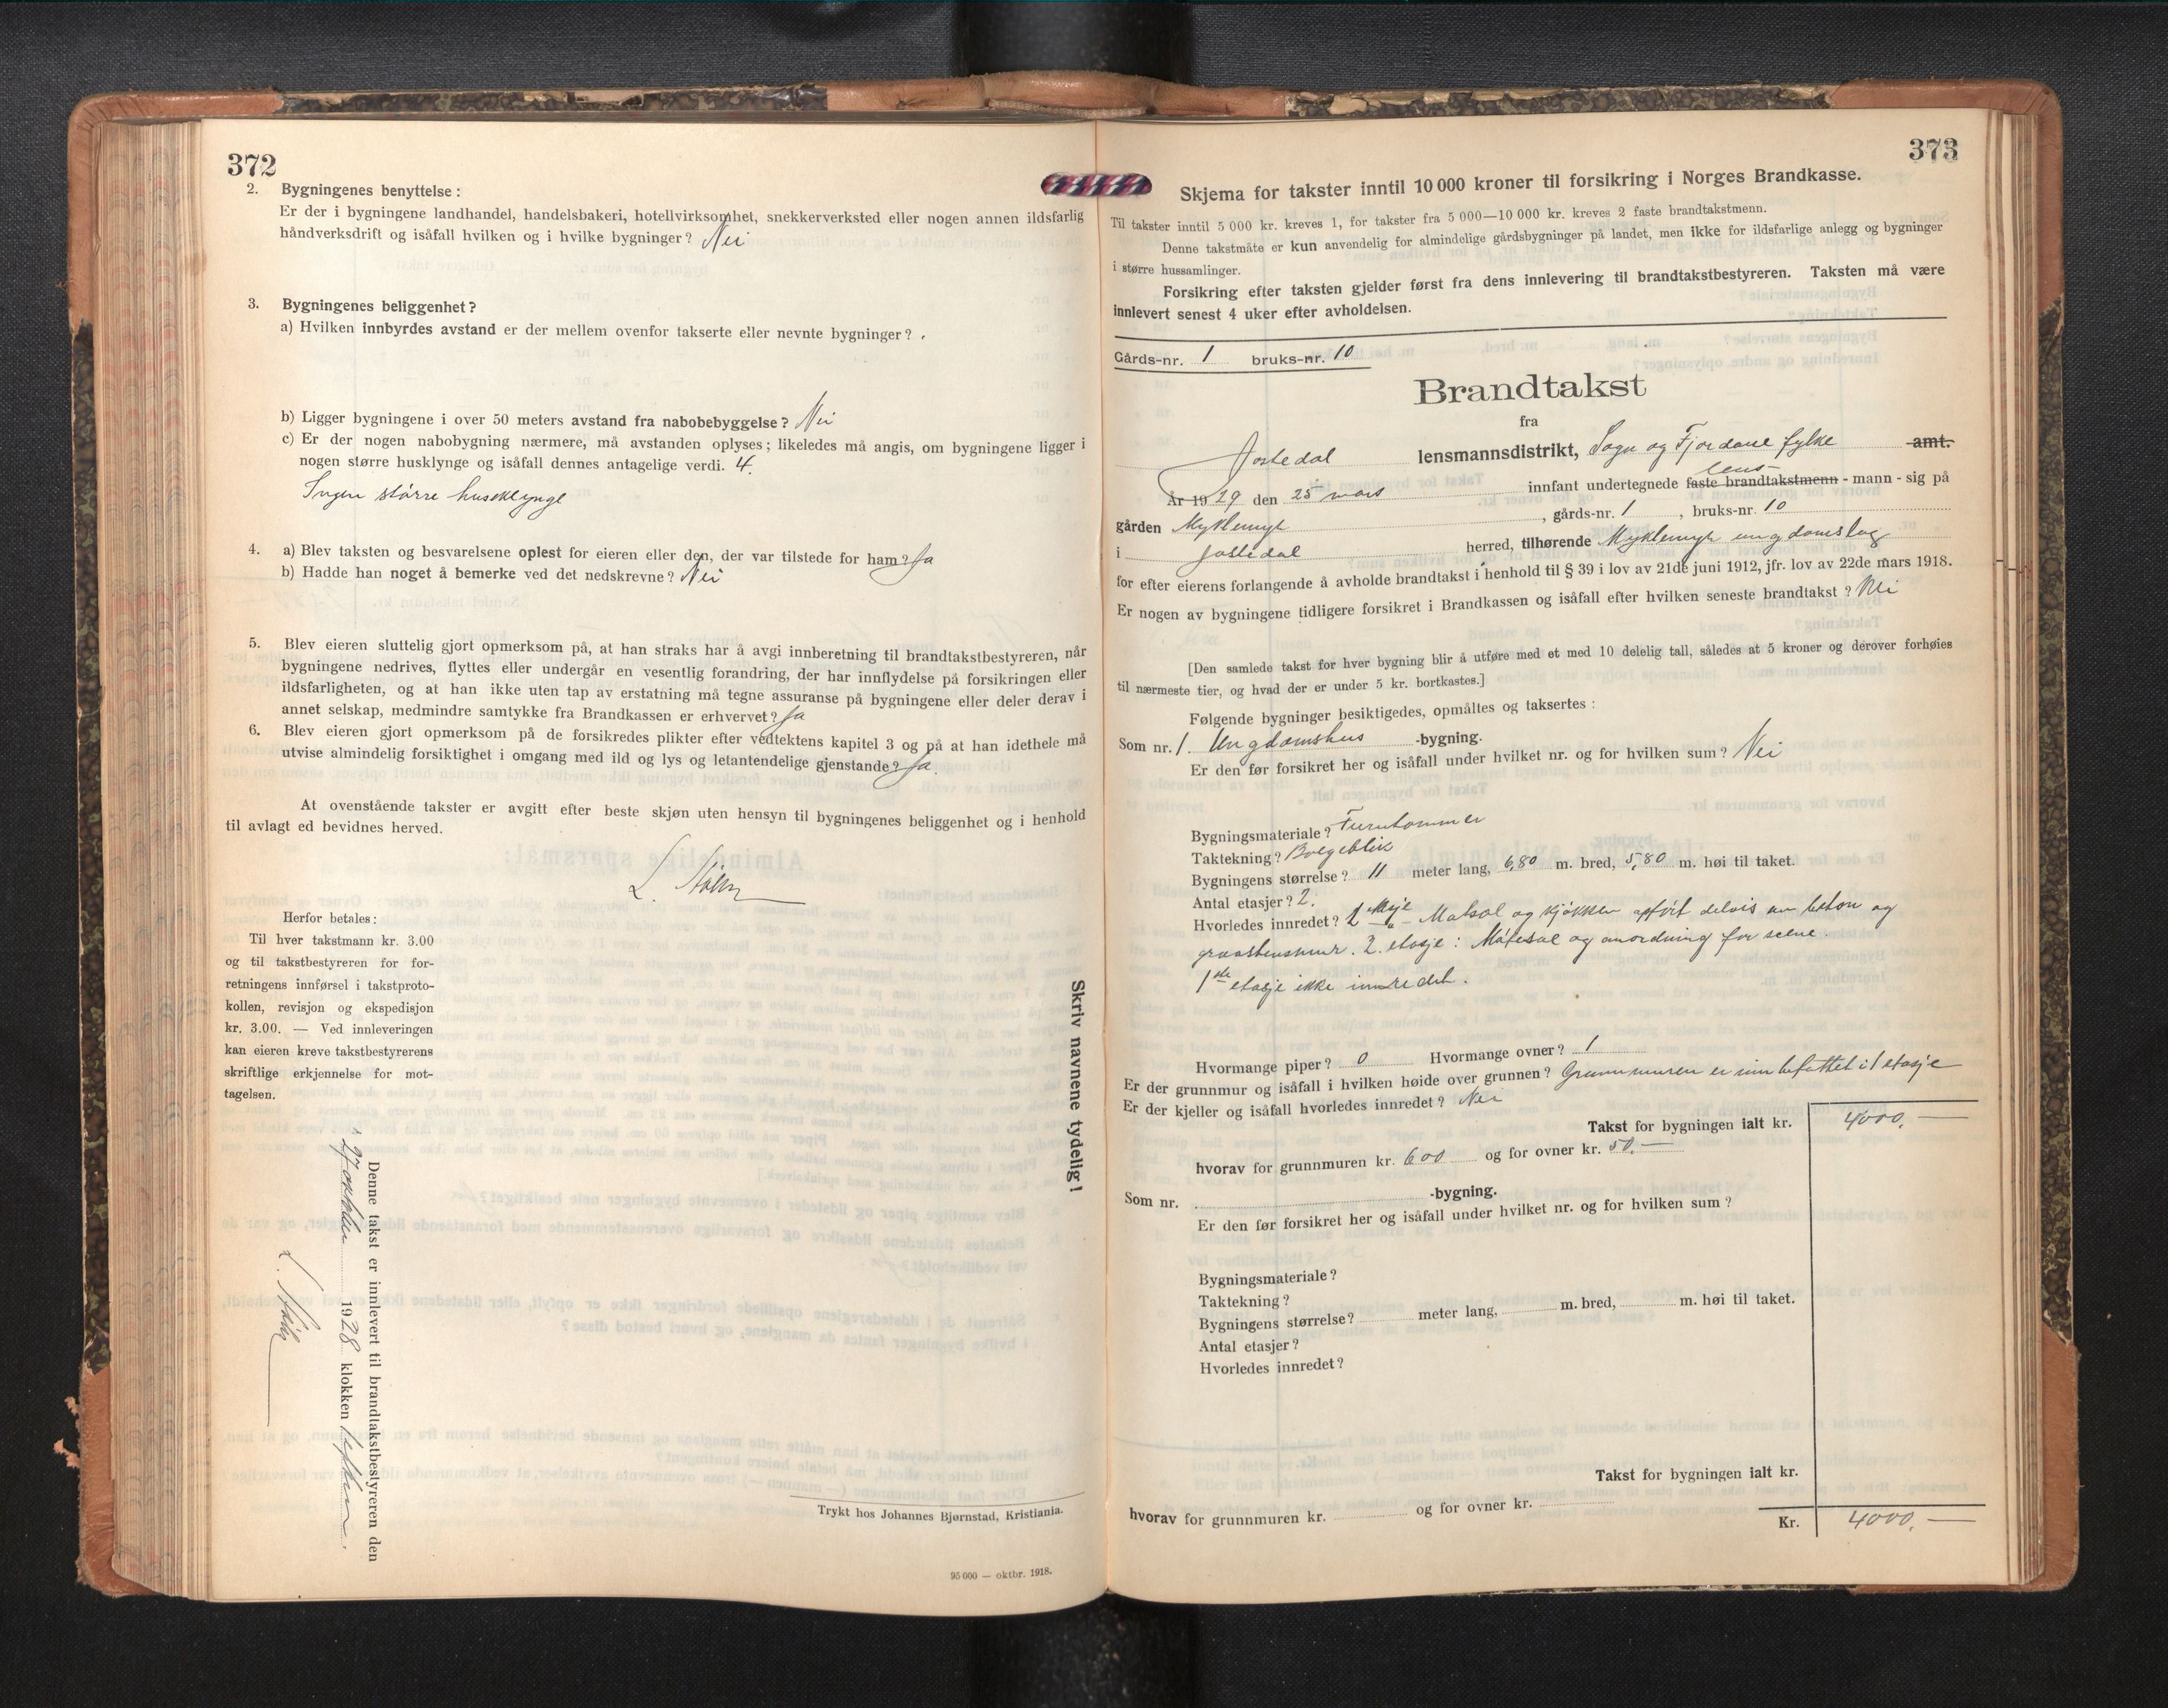 372
2. Bygningenes benyttelse :
Er der i bygningene landhandel, handelsbakeri, hotellvirksomhet, snekkerverksted eller nogen annen ildsfarlig
håndverksdrift og isåfall hvilken og i hvilke bygninger? Nei
3. Bygningenes beliggenhet ?
a) Hvilken innbyrdes avstand er der mellem ovenfor takserte eller nevnte bygninger ?
b) Ligger bygningene i over 50 meters avstand fra nabobebyggelse ? Nei
c) Er der nogen nabobygning nærmere, må avstanden oplyses ; likeledes må angis, om bygningene ligger i
nogen større husklynge og isåfall dennes antagelige verdi. 4.
Ingen större huseklynge
4. a) Blev taksten og besvarelsene oplest for eieren eller den, der var tilstede for ham? Ja
b) Hadde han noget å bemerke ved det nedskrevne ? Nei
5. Blev eieren sluttelig gjort opmerksom på, at han straks har å avgi innberetning til brandtakstbestyreren, når
bygningene nedrives, flyttes eller undergår en vesentlig forandring, der har innflydelse på forsikringen eller
ildsfarligheten, og at han ikke uten tap av erstatning må tegne assuranse på bygningene eller deler derav i
annet selskap, medmindre samtykke fra Brandkassen er erhvervet ? Ja
6. Blev eieren gjort opmerksom på de forsikredes plikter efter vedtektens kapitel 3 og på at han idethele må
utvise almindelig forsiktighet i omgang med ild og lys og letantendelige gjenstande ? Ja.
At ovenstående takster er avgitt efter beste skjøn uten hensyn til bygningenes beliggenhet og i henhold
til avlagt ed bevidnes herved.
Herfor betales :
Til hver takstmann kr. 3.00
og til takstbestyreren for for-
retningens innførsel i takstproto-
kollen, revisjon og ekspedisjon
kr. 3.00. — Ved innleveringen
kan eieren kreve takstbestyrerens
skriftlige erkjennelse for mot-
tagelsen.
Skriv navnene tydelig !
Denne takst er innlevert til brandtakstbestyreren den
27 oktober 1928 klokken
Trykt hos Johannes Bjørnstad, Kristiania.
95 000 — oktbr. 1918.
373
Skjema for takster inntil 10 000 kroner til forsikring i Norges Brandkasse.
Til takster inntil 5 000 kr. kreves 1, for takster fra 5 000—10 000 kr. kreves 2 faste brandtakstmenn.
Denne takstmåte er kun anvendelig for almindelige gårdsbygninger på landet, men ikke for ildsfarlige anlegg og bygninger
i større hussamlinger.
Forsikring efter taksten gjelder først fra dens innlevering til brandtakstbestyreren. Taksten må være
innlevert senest 4 uker efter avholdelsen.
Gårds-nr. 1 bruks-nr. 10
Brandtakst
fra
Jostedal lensmannsdistrikt, Sogn og Fjordane fylke amt.
lens-
År 1929 den 25 mars innfant undertegnede faste brandtakstmenn - mann - sig på
gården Myklemyr, gårds-nr. 1, bruks-nr. 10
i Jostedal herred, tilhørende Myklemyr ungdomslag
for efter eierens forlangende å avholde brandtakst i henhold til § 39 i lov av 21de juni 1912, jfr. lov av 22de mars 1918.
Er nogen av bygningene tidligere forsikret i Brandkassen og isåfall efter hvilken seneste brandtakst ? Nei
[Den samlede takst for hver bygning blir å utføre med et med 10 delelig tall, således at 5 kroner og derover forhøies
til nærmeste tier, og hvad der er under 5 kr. bortkastes.]
Følgende bygninger besiktigedes, opmåltes og taksertes :
Som nr. 1. Ungdomshus -bygning.
Er den før forsikret her og isåfall under hvilket nr. og for hvilken sum ? Nei
Bygningsmateriale ? Furutømmer
Taktekning ? Bølgeblik
Bygningens størrelse ? 11 meter lang, 6,80 m. bred, 5,80 m. høi til taket.
Antal etasjer ? 2.
Hvorledes innredet ? 1 etasje Matsal og kjökken opfört delvis av beton og
graastensmur. 2. etasje : Mötesal og anordning for scene.
1ste etasje ikke innredet.
Hvormange piper ? 0 Hvormange ovner ? 1
Er der grunnmur og isåfall i hvilken høide over grunnen ? Grunnmuren er innbefattet i 1 etasje
Er der kjeller og isåfall hvorledes innredet ? Nei
Takst for bygningen ialt kr. 4000,—
hvorav for grunnmuren kr. 600 og for ovner kr. 50.—
Som nr. -bygning.
Er den før forsikret her og isåfall under hvilket nr. og for hvilken sum ?
Bygningsmateriale ?
Taktekning ?
Bygningens størrelse ? meter lang, m. bred, m. høi til taket.
Antal etasjer ?
Hvorledes innredet ?
Takst for bygningen ialt kr.
hvorav for grunnmuren kr. og for ovner kr.
Kr. 4000,—